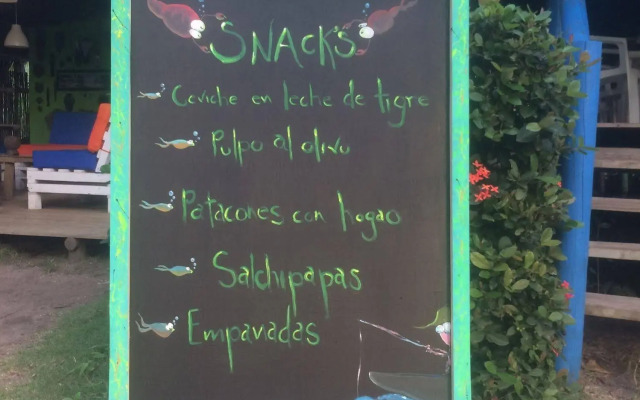 SNACK'S
Ceviche en leche de tigre
Pulpo al olivo
Patacones con hogao
Salchipapas
Empanadas